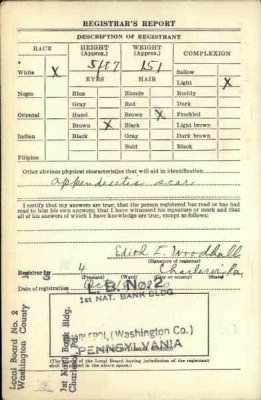 REGISTRAR'S REPORT
DESCRIPTION OF REGISTRANT
RACE
HEIGHT
(Approx.)
WEIGHT
(Approx.)
COMPLEXION
5ft7
151
White X
EYES
HAIR
Sallow
Light X
Negro
Blue
Blonde
Ruddy
Gray
Red
Dark
Oriental
Hazel
Brown X
Freckled
Brown X
Black
Light brown
Indian
Black
Gray
Dark brown
Bald
Black
Filipino
Other obvious physical characteristics that will aid in identification
appendicitis scar
I certify that my answers are true; that the person registered has read or has had
read to him his own answers; that I have witnessed his signature or mark and that
all of his answers of which I have knowledge are true, except as follows:
Edith E. Woodhall
(Signature of registrar)
Registrar for 4 Charleroi, Pa.
(Precinct)
Date of registration
L. B. No. 2
1ST NAT. BANK BLDG
(Washington Co.)
PENNSYLVANIA
having jurisdiction of the registrant
in the above space.)
Local Board No. 2
Washington County
1st Natl Bank Bldg.
Charleroi, Pa.